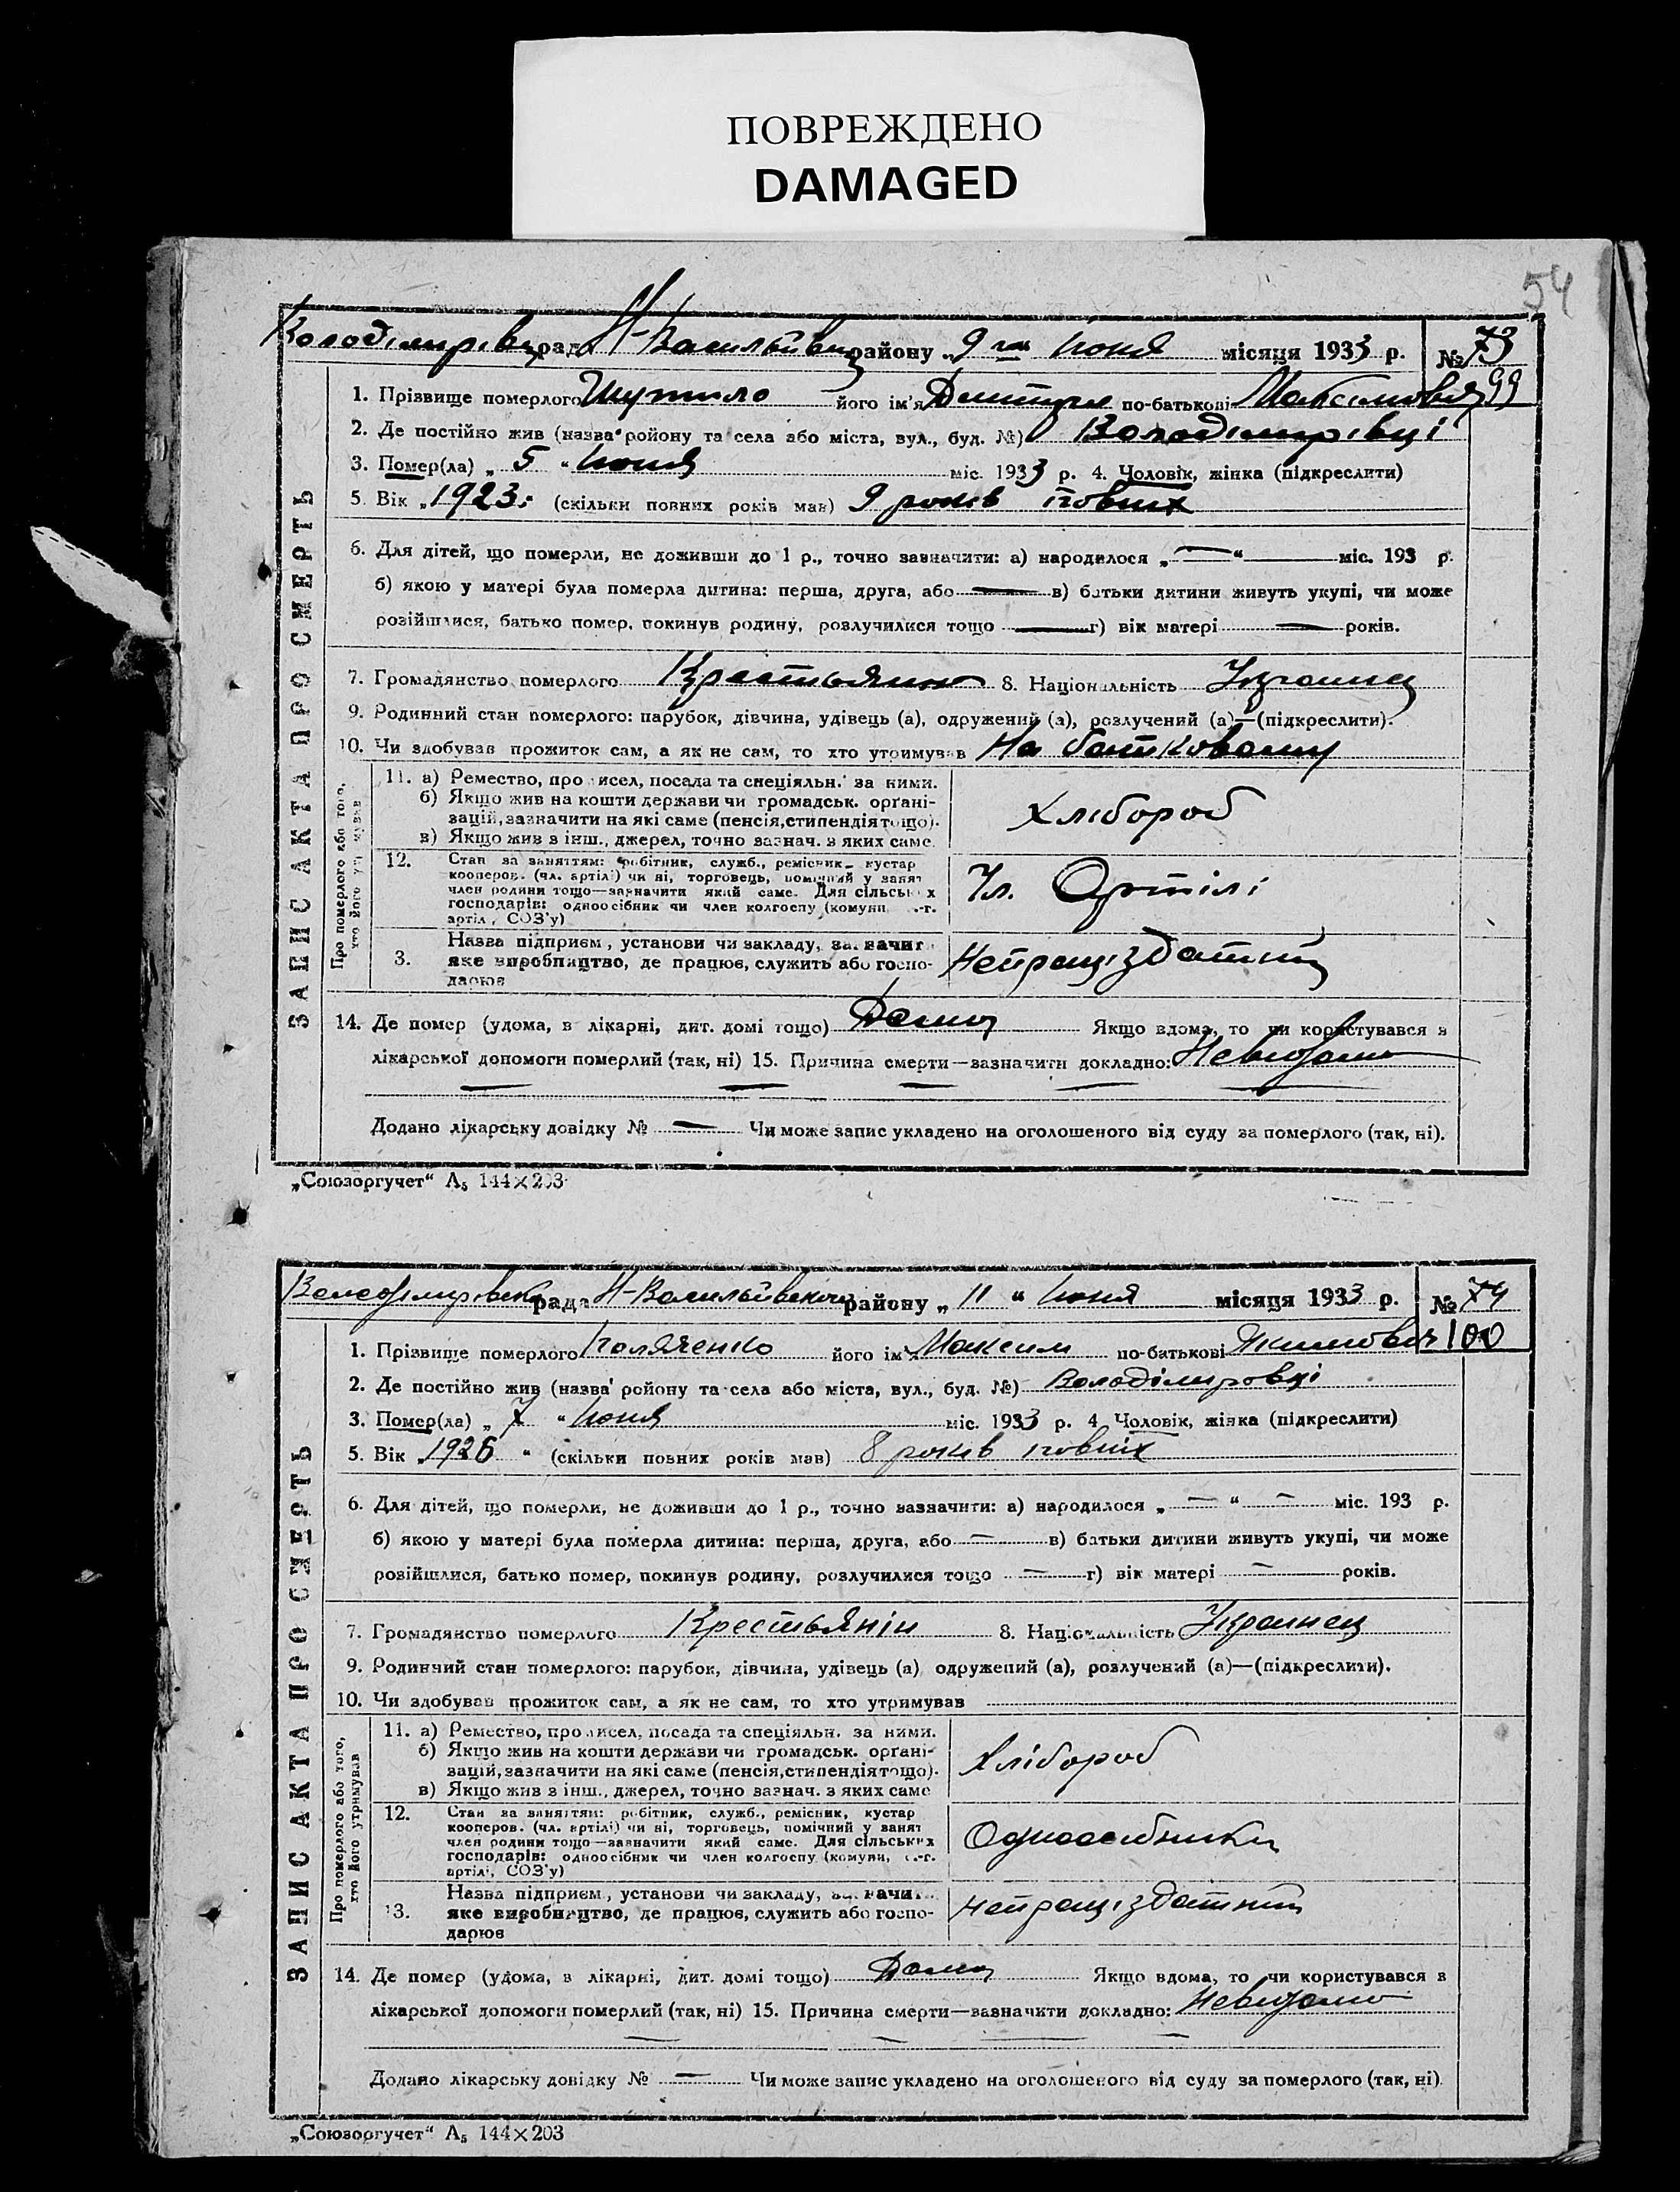 ПОВРЕЖДЕНО
DAMAGED
54
рада Н-Васильївск району „9 го июня місяця 1933 р. № 73
99
1. Прізвище померлого його ім'я по-батькові
2. Де постійно жив (назва ройону та села або міста, вул., буд. №) Володімирівці
3. Помер(ла) „ 5 “ июня міс. 1933 р. 4. Чоловік, жінка (підкреслити)
5. Вік „1923: (скільки повних років мав) 9 років повних
6. Для дітей, що померли, не доживши до 1 р., точно зазначити: а) народилося „—“ — міс. 193 р.
б) якою у матері була померла дитина: перша, друга, або — в) батьки дитини живуть укупі, чи може
розійшлися, батько помер, покинув родину, розлучилися тощо — г) вік матері — років.
7. Громадянство померлого 8. Національність Украинец
9. Родинний стан померлого: парубок, дівчина, удівець (а), одружений (а), розлучений (а)—(підкреслити).
10. Чи здобував прожиток сам, а як не сам, то хто утримував На
ЗАПИС АКТА ПРО СМЕРТЬ
Про померлого або того,
хто його утримував
11. а) Ремество, промисел, посада та спеціяльн. за ними.
б) Якщо жив на кошти держави чи громадськ. орґані-
зацій, зазначити на які саме (пенсія, стипендія тощо).
в) Якщо жив з інш., джерел, точно зазнач. з яких саме.
Хлібороб
12. Стан за заняттям: робітник, служб., ремісник, кустар
кооперов. (чл. артілі) чи ні, торговець, помічний у занят
член родини тощо—зазначити який саме. Для сільських
господарів: одноосібник чи член колгоспу (комуни, с.-г.
артіл, СОЗ'у)
Чл. Артілі
3. Назва підприєм, установи чи закладу, зазначит
яке виробництво, де працює, служить або госпо-
дарює
Непрацездатний
14. Де помер (удома, в лікарні, дит. домі тощо) Дома Якщо вдома, то чи користувався з
лікарської допомоги померлий (так, ні) 15. Причина смерти—зазначити докладно: Невидомо
— — — — —
Додано лікарську довідку № — Чи може запис укладено на оголошеного від суду за померлого (так, ні).
„Союзоргучет“ А5 144×203
рада Н-Васильївського району „ 11 “ июня місяця 1933 р. № 74
100
1. Прізвище померлого Коляченко його ім'я Максим по-батькові Якимович
2. Де постійно жив (назва ройону та села або міста, вул., буд. №) Володімировці
3. Помер(ла) „ 7 “ июня міс. 1933 р. 4 Чоловік, жінка (підкреслити)
5. Вік „1926 “ (скільки повних років мав) 8 років повних
6. Для дітей, що померли, не доживши до 1 р., точно зазначити: а) народилося „ — “ — міс. 193 р.
б) якою у матері була померла дитина: перша, друга, або — в) батьки дитини живуть укупі, чи може
розійшлися, батько помер, покинув родину, розлучилися тощо — г) вік матері — років.
7. Громадянство померлого Крестьянін 8. Національність Украинец
9. Родинний стан померлого: парубок, дівчина, удівець (а) одружений (а), розлучений (а)—(підкреслити).
10. Чи здобував прожиток сам, а як не сам, то хто утримував
ЗАПИС АКТА ПРО СМЕРТЬ
Про померлого або того,
хто його утримував
11. а) Ремество, промисел, посада та спеціяльн. за ними.
б) Якщо жив на кошти держави чи громадськ. орґані-
зацій, зазначити на які саме (пенсія, стипендія тощо).
в) Якщо жив з інш., джерел, точно зазнач. з яких саме
Хлібороб
12. Стан за заняттям: робітник, служб., ремісник, кустар
кооперов. (чл. артілі) чи ні, торговець, помічний у занят
член родини тощо—зазначити який саме. Для сільських
господарів: одноосібник чи член колгоспу (комуни, с.-г.
артілі, СОЗ'у)
13. Назва підприєм, установи чи закладу, зазначит
яке виробництво, де працює, служить або госпо-
дарює
Непрацездатний
14. Де помер (удома, в лікарні, дит. домі тощо) Дома Якщо вдома, то чи користувався з
лікарської допомоги померлий (так, ні) 15. Причина смерти—зазначити докладно: Невидомо
— — — —
Додано лікарську довідку № — Чи може запис укладено на оголошеного від суду за померлого (так, ні).
„Союзоргучет“ А5 144×203